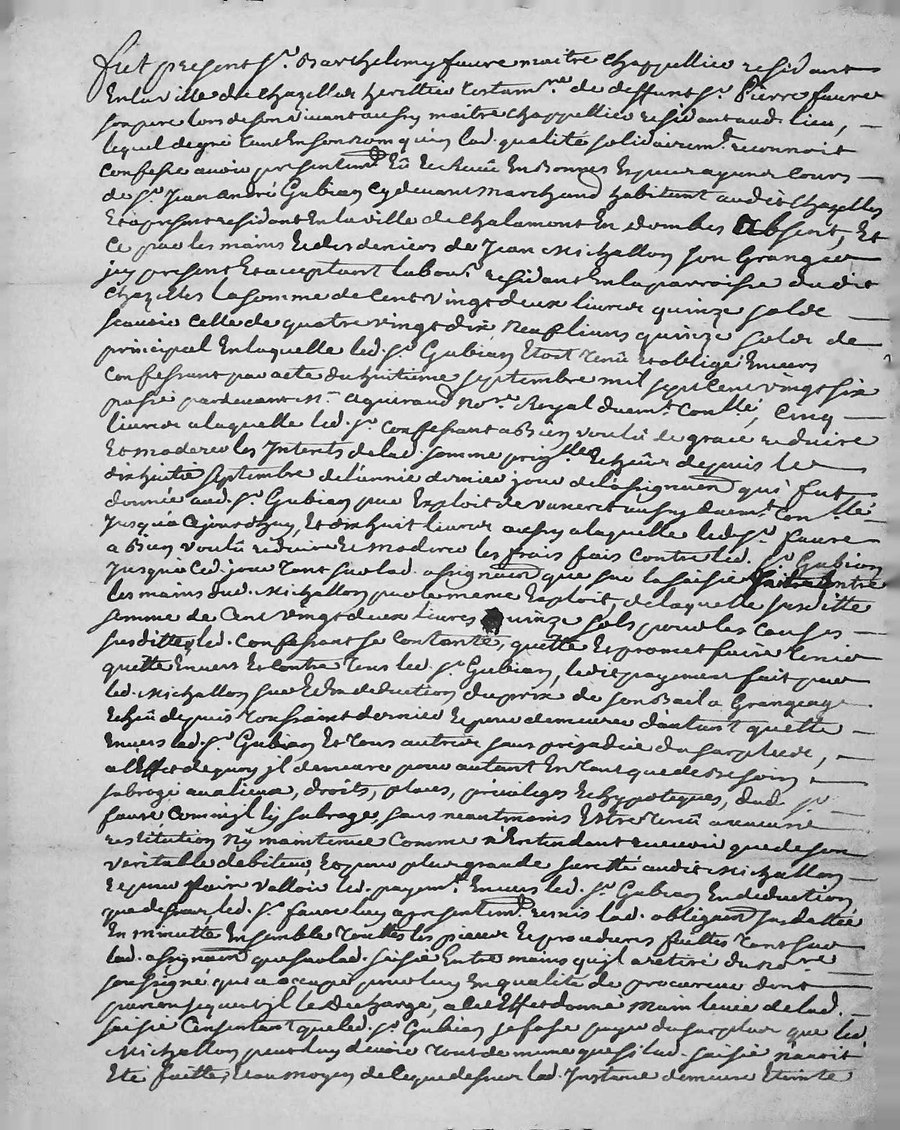 fut present Sr. Barthelemy faure maitre chappellier residant
En la ville de chazelles heritier testamre. de deffunt Sr. Pierre faure
son pere lors de son vivant aussy maitre chappellier residant aud. lieu,
lequel de gré tant En son nom qu'en lad. qualité solidairemt. reconnoit
Confesse avoir presentemt. Eû Et Receû En bonnes Especes ayant cours
de Sr. Jean André Gubian cy devant Marchand habitant audit Chazelles
Et apresent residant En la ville de Chalamont En dombes absent, Et
Ce par les mains Et des deniers de Jean Michallon son Granger
jcy present Et aceptant labour. residant En la parroisse dudit
Chazelles la somme de Cent vingt deux livres quinze solds
scavoir Celle de quatre vingt dix Neuf livres quinze solds de
principal En laquelle led. Sr. Gubian Etoit tenû Et obligé Envers
Confessant par acte du huitieme septembre mil sept Cent vingt six
passé par devant Me. aguiraud Nore. Royal duemt. Contllé, Cinq
livres a laquelle led. Sr. Confessant a Bien voulû de grace reduire
Et moderer les Interets de lad. somme prinlle. Echûs depuis le
dixhuitie septembre de l'année derniere jour de l'assignaon qui fut
donnée aud. Sr. Gubian par Exploit de vaneret aussy duemt. Contllé.
Jusqu'a cejourdhuy, Et dixhuit livres aussy a laquelle led. Sr. faure
a Bien voulû reduire Et moderer les frais fais Contre led. Sr. Gubian
Jusqu'a ced. jour tant sur lad. assignaon que sur la saisie faite Entre
les mains dud. Michallon par le meme Exploit, de laquelle susditte
somme de Cent vingt deux livres quinze sols pour les causes
susdittes led. Confessant se contante, quitte Et promet faire tenir
quitte Envers Et Contre tous led. Sr. Gubian, ledit payement fait par
led. Michallon sur Et En deduction du prix de son Bail a Grangeage
Echû depuis toussaint dernier Et pour demeurer d'autant quitte
Envers led. Sr. Gubian Et tous autres sans prejudice du surplus,
a l'Effet de quoy jl demeure pour autant En tant que de Besoin
subrogé aux lieux, droits, places, privileges Et hypoteques, dud. Sr.
faure Comm'jl l'y subroge, sans neantmoins Estre tenû a aucune
restitution Ny maintenue Comme n'Entendant recevoir que de son
veritable debiteur, Et pour plus grande surette audit Michallon
Et pour faire valloir led. payemt. Envers led. Sr. Gubian En deduction,
que dessus, led. Sr. faure luy a presentemt. remis lad. obligaon susdattée
En minutte Ensemble touttes les pieces Et procedures faittes tant sur
lad. assignaon que sur lad. saisie Entre mains qu'jl a retiré du Nore.
soussigné qui a occupé pour luy En qualité de procureur dont
par consequent jl le decharge, a cet Effet donne main levée de lad.
saisie Consentant que led. Sr. Gubian se fasse payer du surplus que led.
Michallon peut luy devoir tout de meme que si lad. saisie n'avoit
Eté faitte, Et au moyen de ce que dessus lad. Instance demeure Eteinte